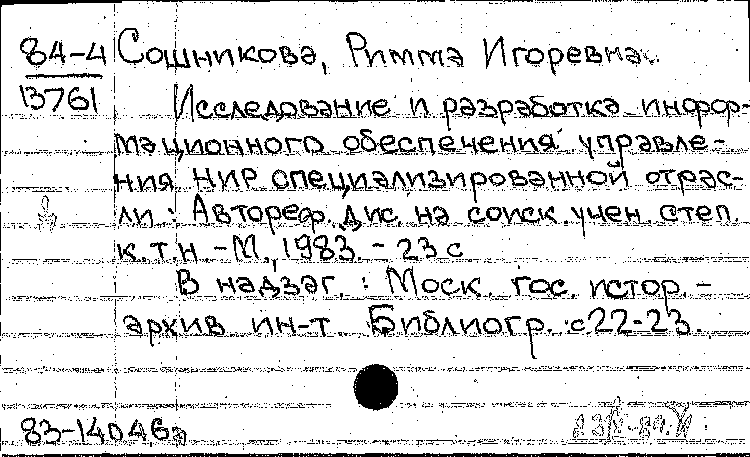 84-4 Сошникова, Римма Игоревна.
13761 Исследование и разработка инфор-
мационного обеспечения управле-
ния НИР специализированной отрас-
ли : Автореф. дис. на соиск. учен. степ.
к.т.н. - М., 1983. - 23 с
В надзаг. : Моск. гос. истор.-
архив. ин-т. Библиогр.: с. 22-23.
83-14046а